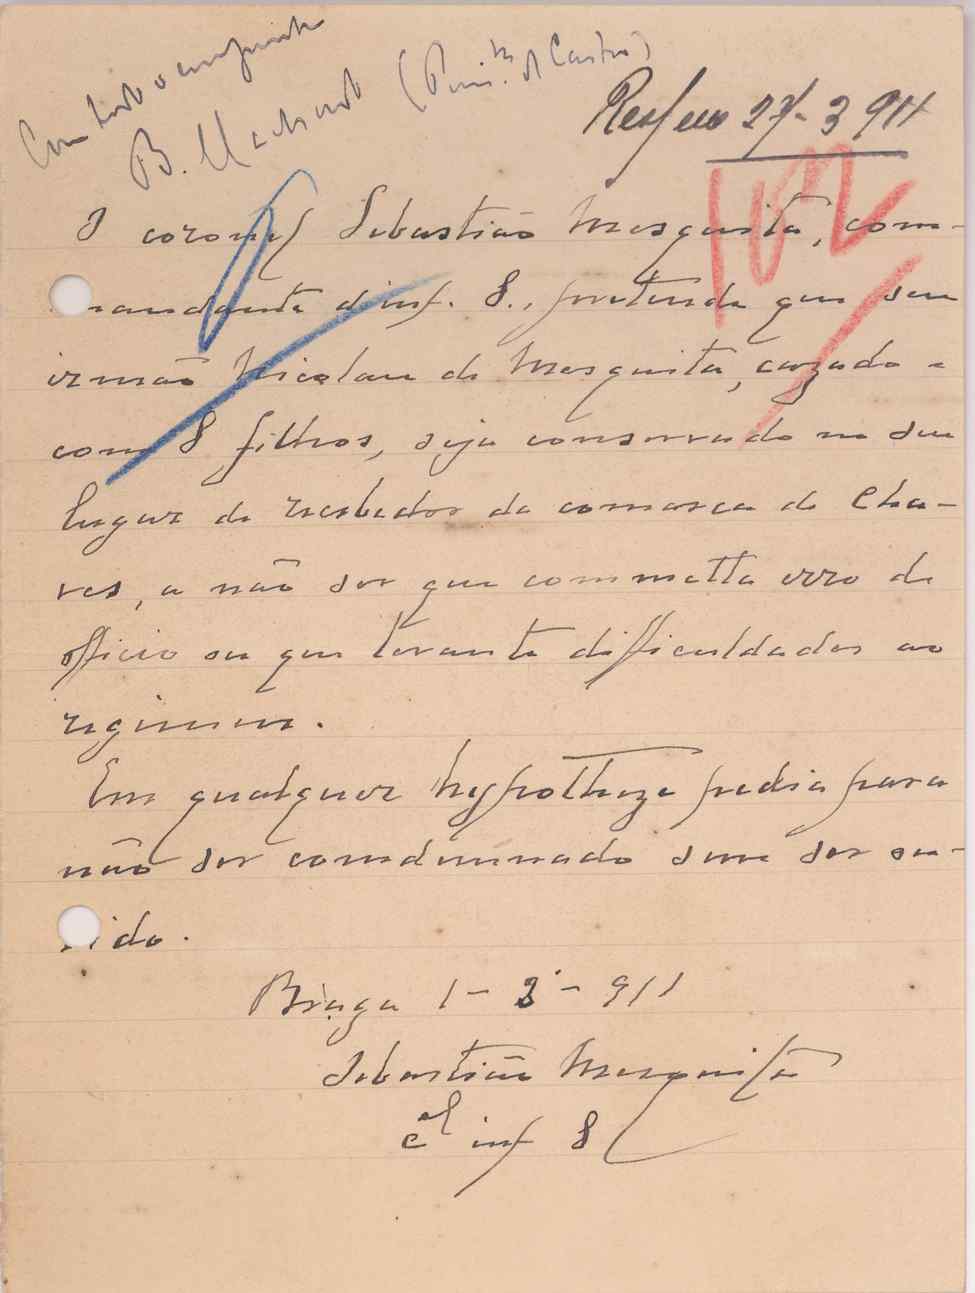 Com todo o empenho
B. Machado
Castro)
Resp. em 27-3 911
102
O coronel Sebastião Mesquita, com-
mandante d'inf. 8., pretende que seu
irmão Nicolau de Mesquita, cazado e
com 8 filhos, seja conservado no seu
lugar de recebedor da comarca de Cha-
ves, a não ser que commetta erro de
officio ou que levante difficuldades ao
regimen.
Em qualquer hypotheze pedia para
não ser condemnado sem ser ou-
vido.
Braga 1-3-911
Sebastião Mesquita
cel inf 8